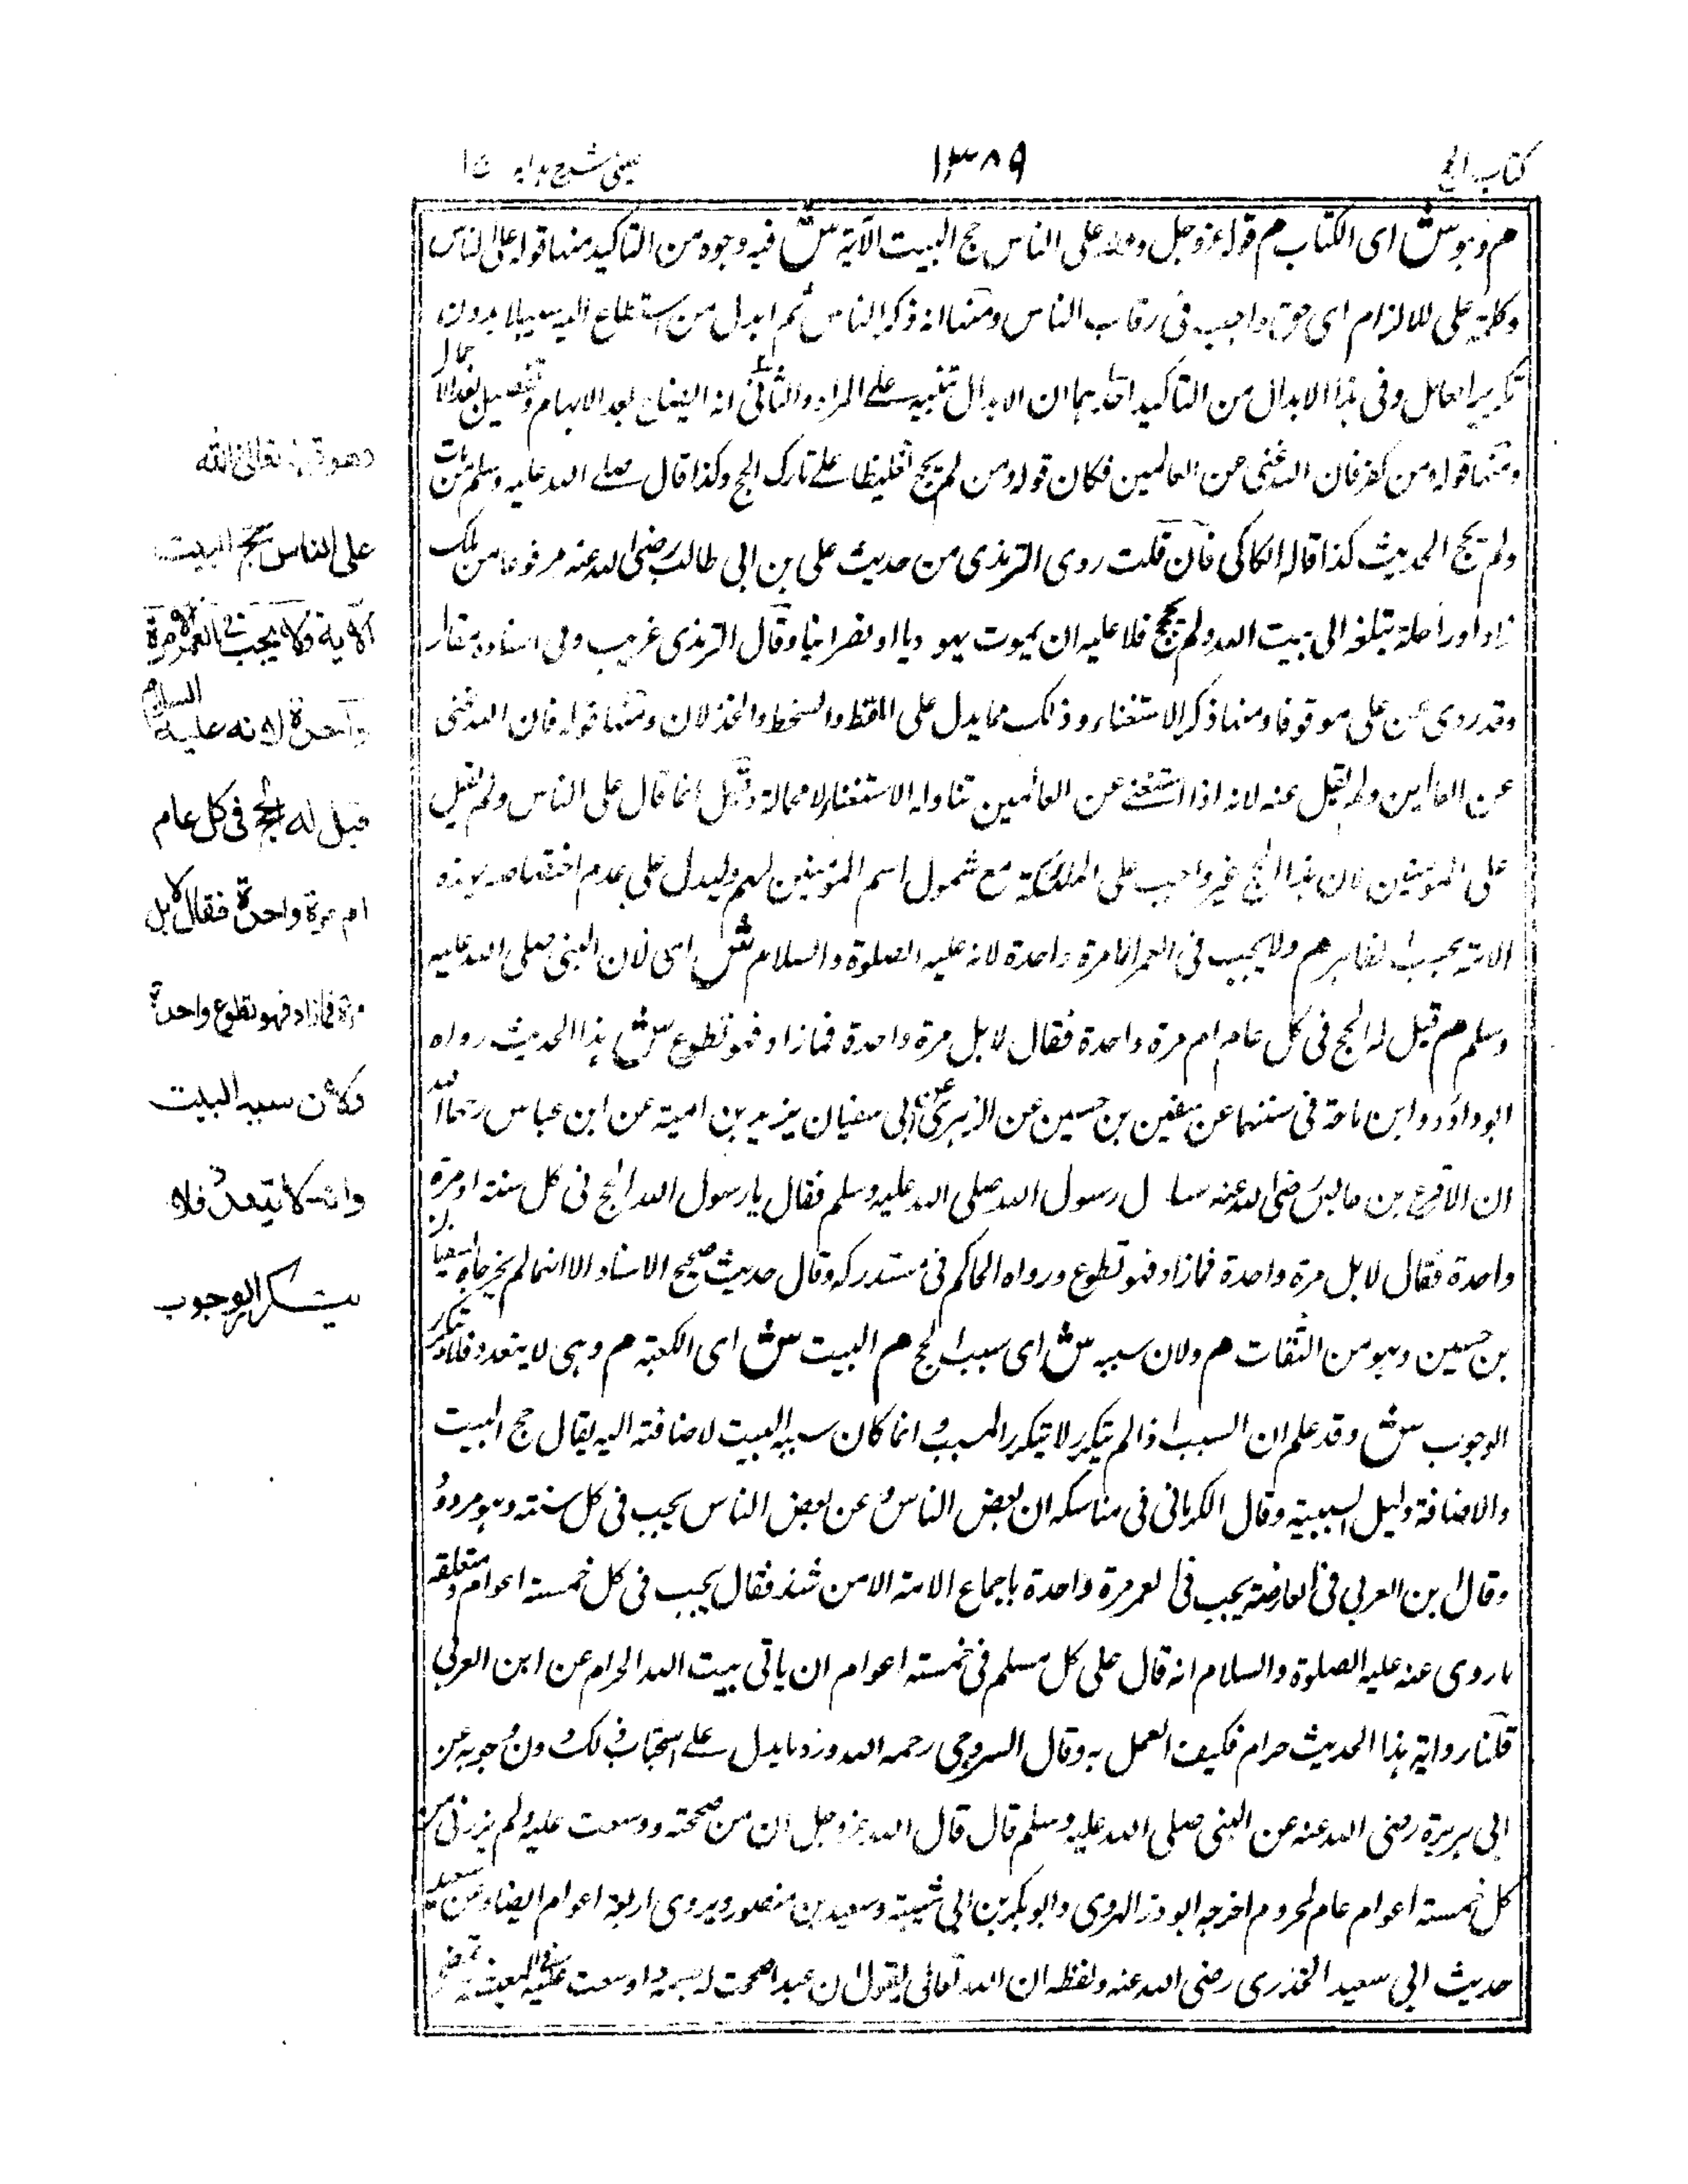 كتاب الحج
١٣٨٩
عينى شرح هدايه ج١
م وهو ش اى الكتاب م قوله عز وجل ولله على الناس حج البيت الآية ش فيه وجوه من التاكيد منها قوله على الناس
وكلمة على للالزام اى حق واجب فى رقاب الناس ومنها انه ذكر الناس ثم ابدل من استطاع اليه سبيلا بدون
تكرير العامل وفى هذا الابدال من التاكيد احدهما ان الابدال تنبيه على المراد والثانى انه ايضاح بعد الابهام وتفصيل بعد الاجمال
ومنها قوله ومن كفر فان الله غنى عن العالمين فكان قوله ومن لم يحج تغليظا على تارك الحج وكذا قال صلى الله عليه وسلم من مات
ولم يحج الحديث كذا قاله الكاكى فان قلت روى الترمذى من حديث على بن ابى طالب رضى الله عنه مرفوعا من ملك
زادا وراحلة تبلغه الى بيت الله ولم يحج فلا عليه ان يموت يهوديا او نصرانيا وقال الترمذى غريب وفى اسناده مقال
وقد روى عن على موقوفا ومنها ذكر الاستغناء وذلك مما يدل على المقط والسخط والخذلان ومنها قوله فان الله غنى
عن العالمين ولم يقل عنه لانه اذا استغنى عن العالمين تناوله الاستغناء لا محالة وقيل انما قال على الناس ولم يقل
على المؤمنين لان هذا الحج غير واجب على الملائكة مع شمول اسم المؤمنين لهم وليدل على عدم اختصاصه بهذه
الامة بحسب الظاهر م ولا يجب فى العمر الا مرة واحدة لانه عليه الصلوة والسلام ش اى لان النبى صلى الله عليه
وسلم م قيل له الحج فى كل عام ام مرة واحدة فقال لا بل مرة واحدة فما زاد فهو تطوع ش هذا الحديث رواه
ابو داؤد وابن ماجة فى سننهما عن سفين بن حسين عن الزهرى عن ابى سفيان يزيد بن امية عن ابن عباس رحمه الله
ان الاقرع بن حابس رضى الله عنه سا ل رسول الله صلى الله عليه وسلم فقال يا رسول الله الحج فى كل سنة او مرة
واحدة فقال لا بل مرة واحدة فما زاد فهو تطوع ورواه الحاكم فى مستدركه وقال حديث صحيح الاسناد الا انهما لم يخرجاه لسفيان
بن حسين وهو من الثقات م ولان سببه ش اى سبب الحج م البيت ش اى الكعبة م وهى لا يتعدد فلا يتكرر
الوجوب ش وقد علم ان السبب اذا لم يتكرر لا يتكرر المسبب وانما كان سببه البيت لاضافته اليه يقال حج البيت
والاضافة دليل السببية وقال الكرمانى فى مناسكه ان بعض الناس وعن بعض الناس يجب فى كل سنة وهو مردود
وقال ابن العربى فى العارضة يجب فى العمر مرة واحدة باجماع الامة الا من شذ فقال يجب فى كل خمسة اعوام ومتعلقه
ما روى عنه عليه الصلوة والسلام انه قال على كل مسلم فى خمسة اعوام ان ياتى بيت الله الحرام عن ابن العربى
قلنا رواية هذا الحديث حرام فكيف العمل به وقال السروجى رحمه الله وزد ما يدل على استحباب ذلك دون وجوبه عن
ابى هريرة رضى الله عنه عن النبى صلى الله عليه وسلم قال قال الله عز وجل ان من صححته ووسعت عليه لم يزرنى من
كل خمسة اعوام عام لمحروم اخرجه ابو ذر الهروى وابو بكر بن ابى شيبة وسعيد بن منصور ويروى اربعة اعوام ايضا وعن سعيد
حديث ابى سعيد الخدرى رضى الله عنه ولفظه ان الله تعالى يقول ان عبدا صححت له جسمه واوسعت عليه فى المعيشة تمضى
وهو قوله تعالى ولله
على الناس حج البيت
الآية ولا يجب فى العمر الا مرة
واحدة لانه عليه السلام
قيل له الحج فى كل عام
ام مرة واحدة فقال لا بل
مرة فما زاد فهو تطوع واحدة
ولان سببه البيت
وانه لا يتعدد فلا
يتكرر الوجوب